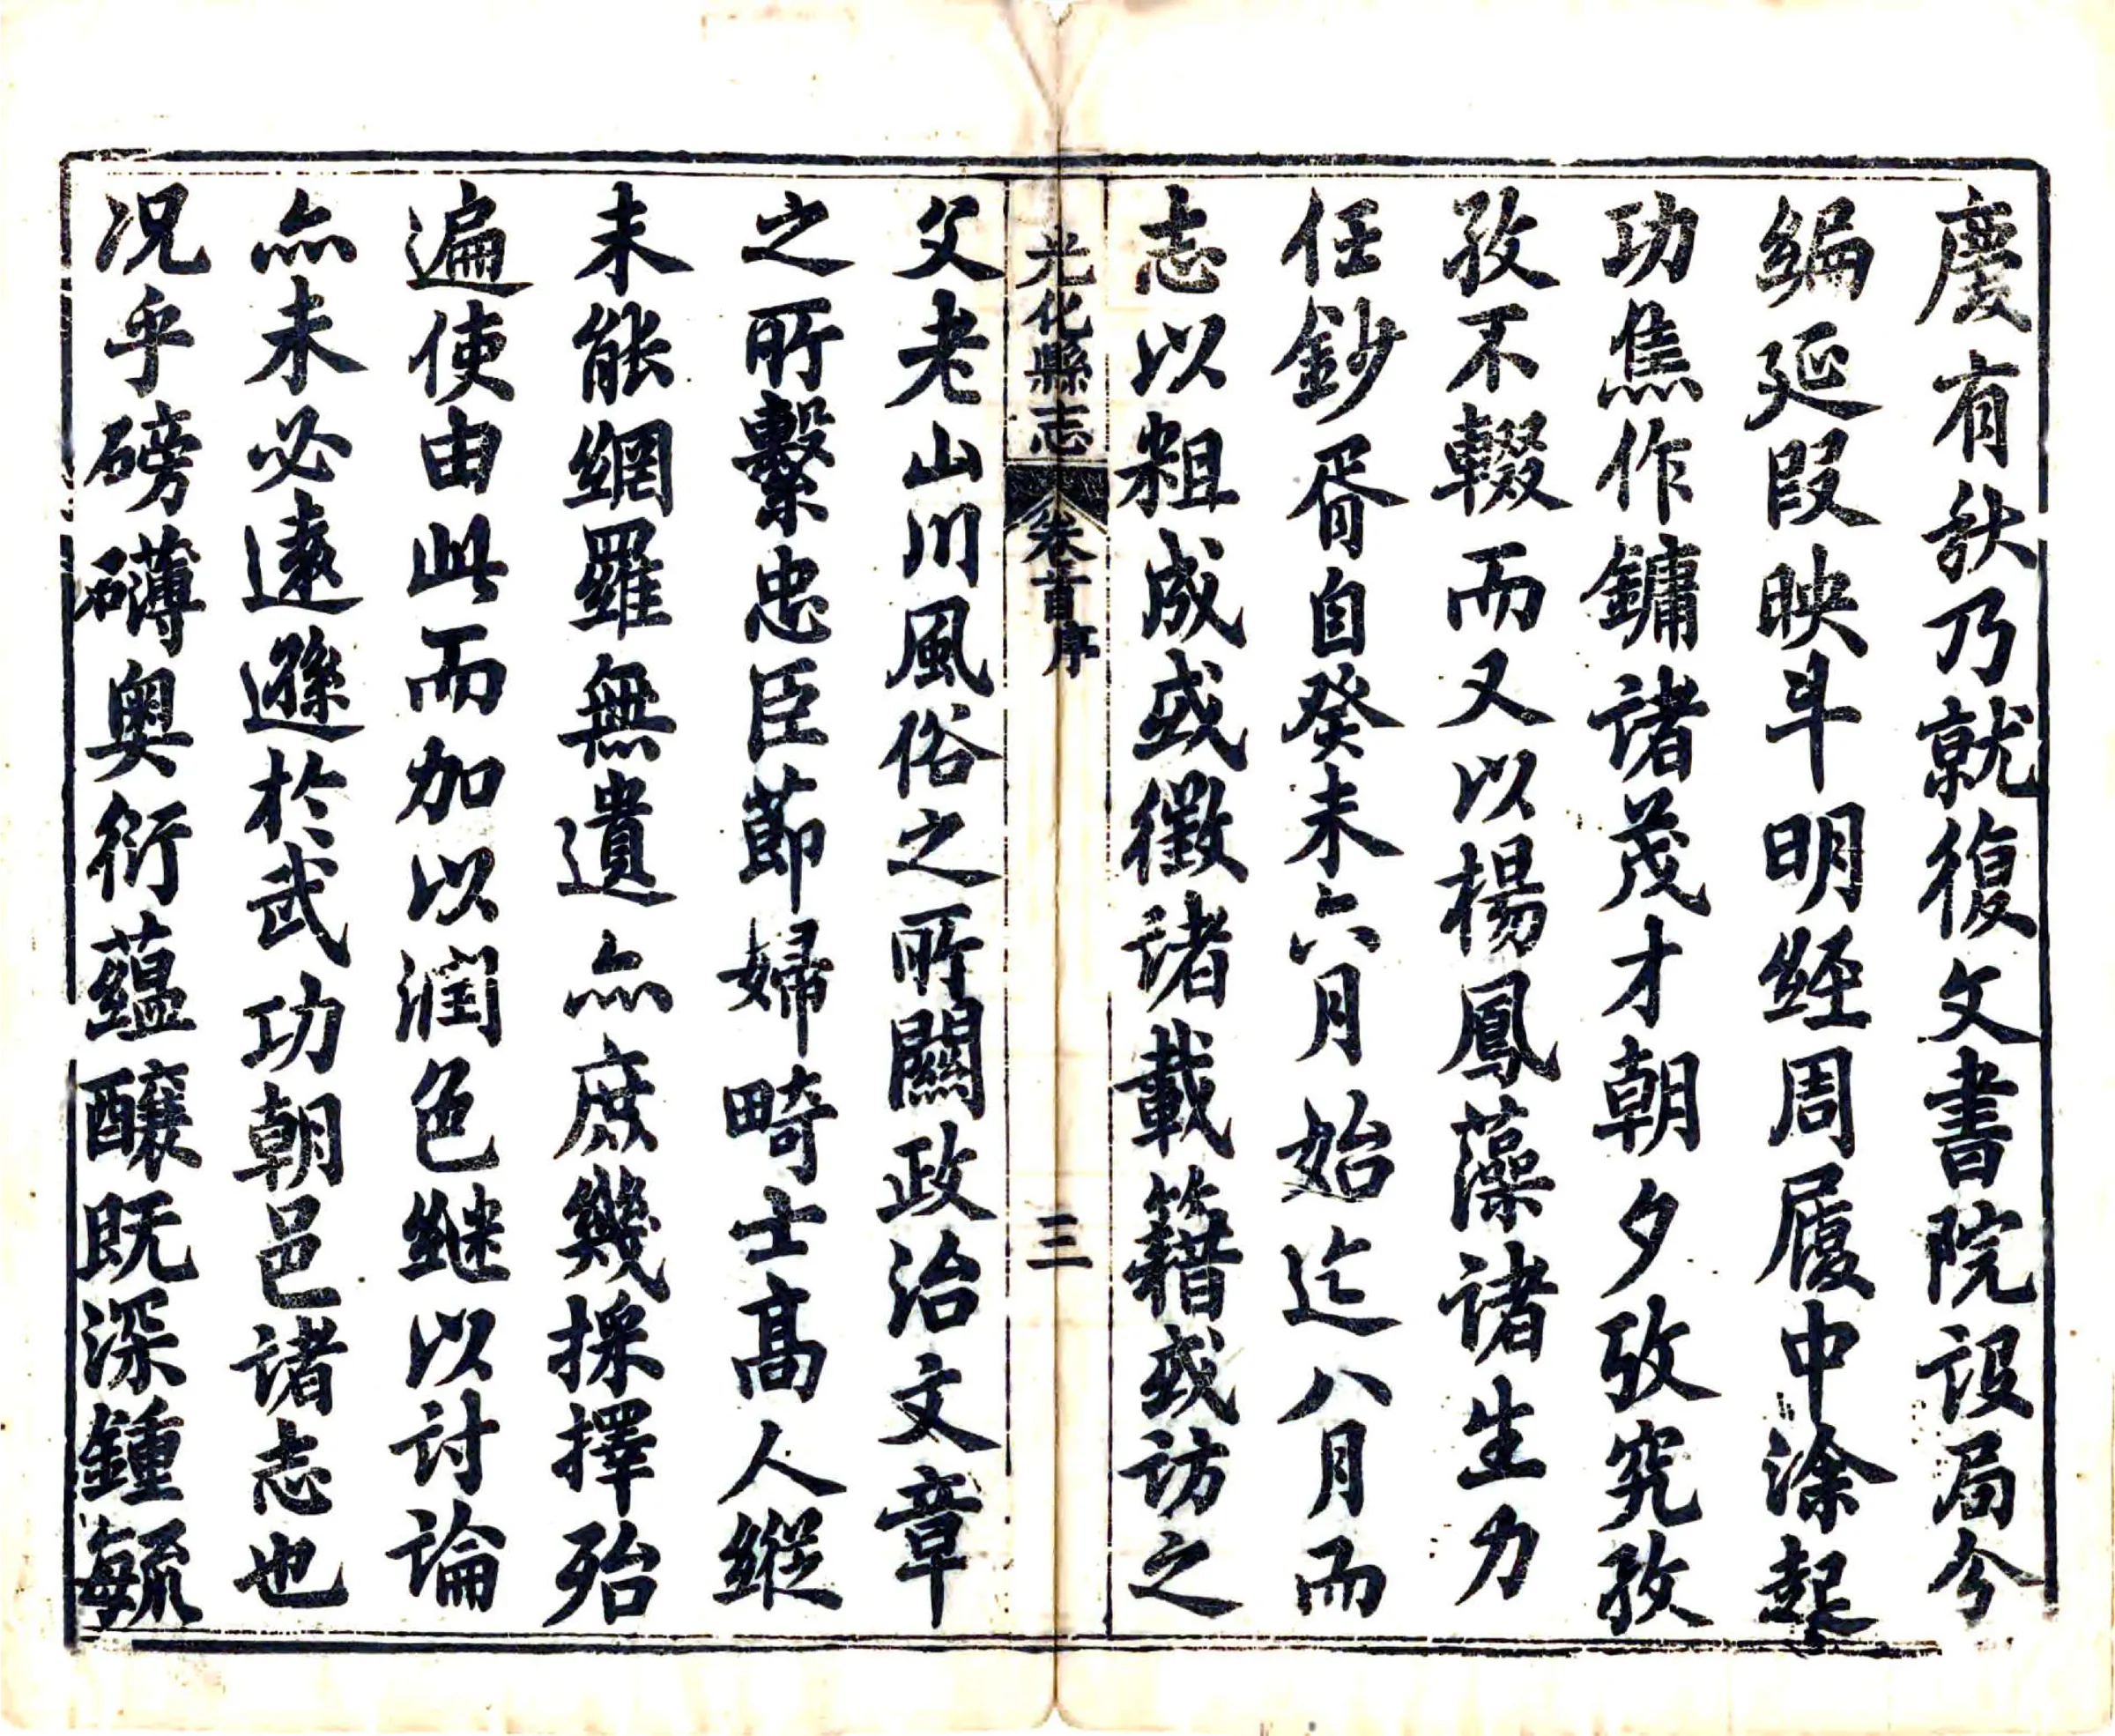 慶有秋乃就復文書院設局分
編延段映斗明經周履中涂起
功焦作鏞諸茂才朝夕攷究孜
孜不輟而又以楊鳳藻諸生力
任鈔胥自癸未六月始迄八月而
志以粗成或徵諸載籍或訪之
光化縣志
卷首序
三
父老山川風俗之所關政治文章
之所繫忠臣節婦畸士高人縱
未能網羅無遺亦庶幾採擇殆
遍使由此而加以潤色継以討論
亦未必遠遜於武功朝邑諸志也
况乎磅礴奥衍蘊釀既深鍾毓